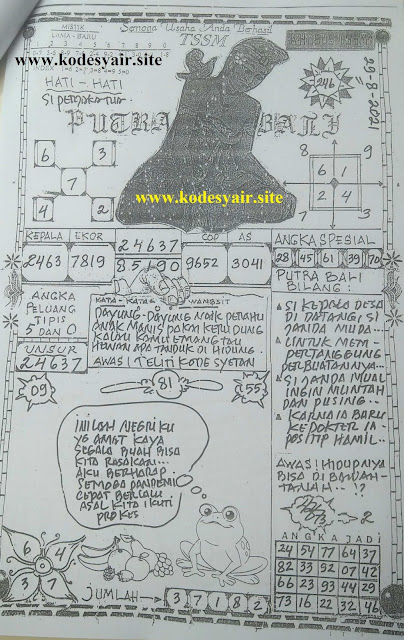 MISTIK
LAMA - BARU
Semoga Usaha Anda Berhasil
TSSM
1 2 3 4 5 6 7 8 9 0
www.kodesyair.site
HATI - HATI
SI PEMAKAI
246
29-8-2021
PUTRA BALI
6 3
7
4 2
www.kodesyair.site
8 9
6 1
2 4
7 3
KEPALA EKOR
2463 7819
24637
85190
COP AS
9652 3041
ANGKA SPESIAL
28 45 61 39 70
ANGKA
PELUANG
TIPIS
5 DAN 0
UNSUR
24637
KATA - KATA WANGSIT
DAYUNG - DAYUNG NAIK PERAHU
ANAK MANIS PAKAI KERUDUNG
KALAU KAMU EMANG TAU
HEWAN APA TANDUK DI HIDUNG.
AWAS! TELITI KODE SYETAN
09
81
55
PUTRA BALI
BILANG:
SI KEPALA DESA
DI DATANGI SI
JANDA MUDA...
UNTUK MEM-
PERTANGGUNG
PERBUATANNYA...
SI JANDA MUAL
INGIN MUNTAH
DAN PUSING...
KARNA IA BARU
KE DOKTER IA
POSITIP HAMIL..
AWAS! HIDUPNYA
BISA DI BAWAH
TANAH...!?
INILAH NEGRI KU
YG AMAT KAYA
SEGALA BUAH BISA
KITA RASAKAN...
AKU BERHARAP
SEMOGA PANDEMI
CEPAT BERLALU
ASAL KITA IKUTI
PROKES
2
ANGKA JADI
24 54 77 64 37
82 33 92 07 42
66 23 93 44 29
73 16 22 32 46
6 4
3 7
JUMLAH
3 7 1 8 2